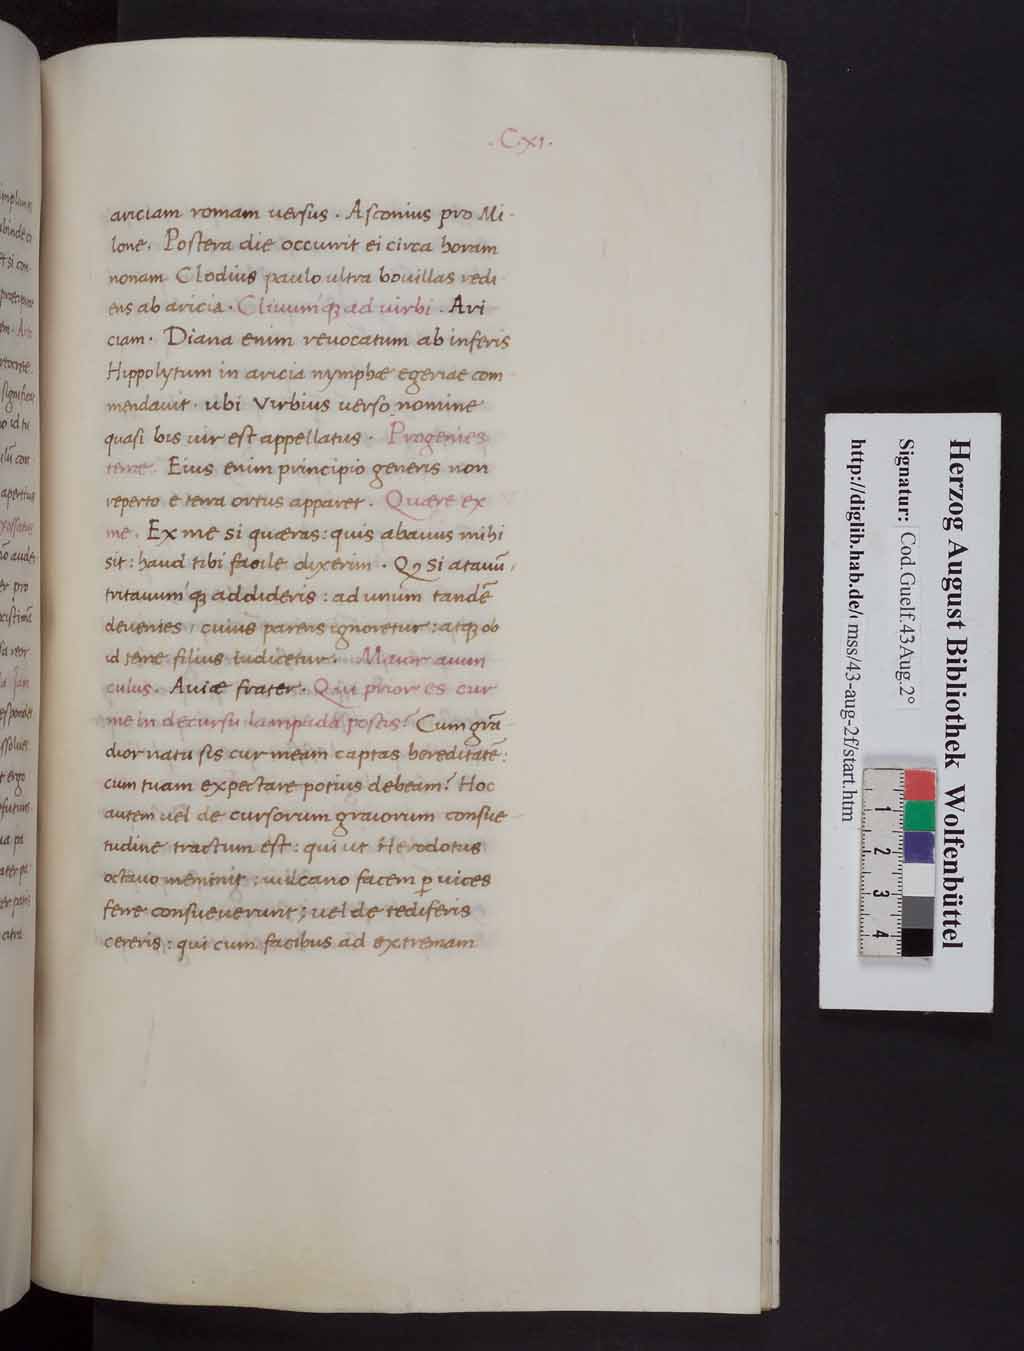 .C.XI.
ariciam romam uersus. Asconius pro Mi-
lone. Postera die occurrit ei circa horam
nonam Clodius paulo ultra bouillas redi
ens ab aricia. Cliuumq3 ad uirbi. Ari
ciam. Diana enim reuocatum ab inferis
Hippolytum in aricia nymphæ egeriae com
mendauit. ubi Virbius uerso nomine
quasi bis uir est appellatus. Progenies
terræ. Eius enim principio generis non
reperto e terra ortus apparet. Quære ex
me. Ex me si quæras: quis abauus mihi
sit: haud tibi facile dixerim. Q3 si atauū,
tritauumq3 addideris: ad unum tandē
deuenies, cuius parens ignoretur: atq3 ob
id terræ filius iudicetur. Maior auun
culus. Auiæ frater. Qui prior es cur
me in decursu lampada poscis? Cum grā
dior natu sis cur meam captas hereditatē:
cum tuam expectare potius debeam? Hoc
autem uel de cursorum graiorum consue
tudine tractum est: qui ut Herodotus
octauo meminit: uulcano facem p uices
ferre consueuerunt; uel de tediferis
cereris: qui cum facibus ad extremam
Herzog August Bibliothek Wolfenbüttel
Signatur: Cod.Guelf.43Aug.2°
http://diglib.hab.de/ mss/43-aug-2f/start.htm
1
2
3
4